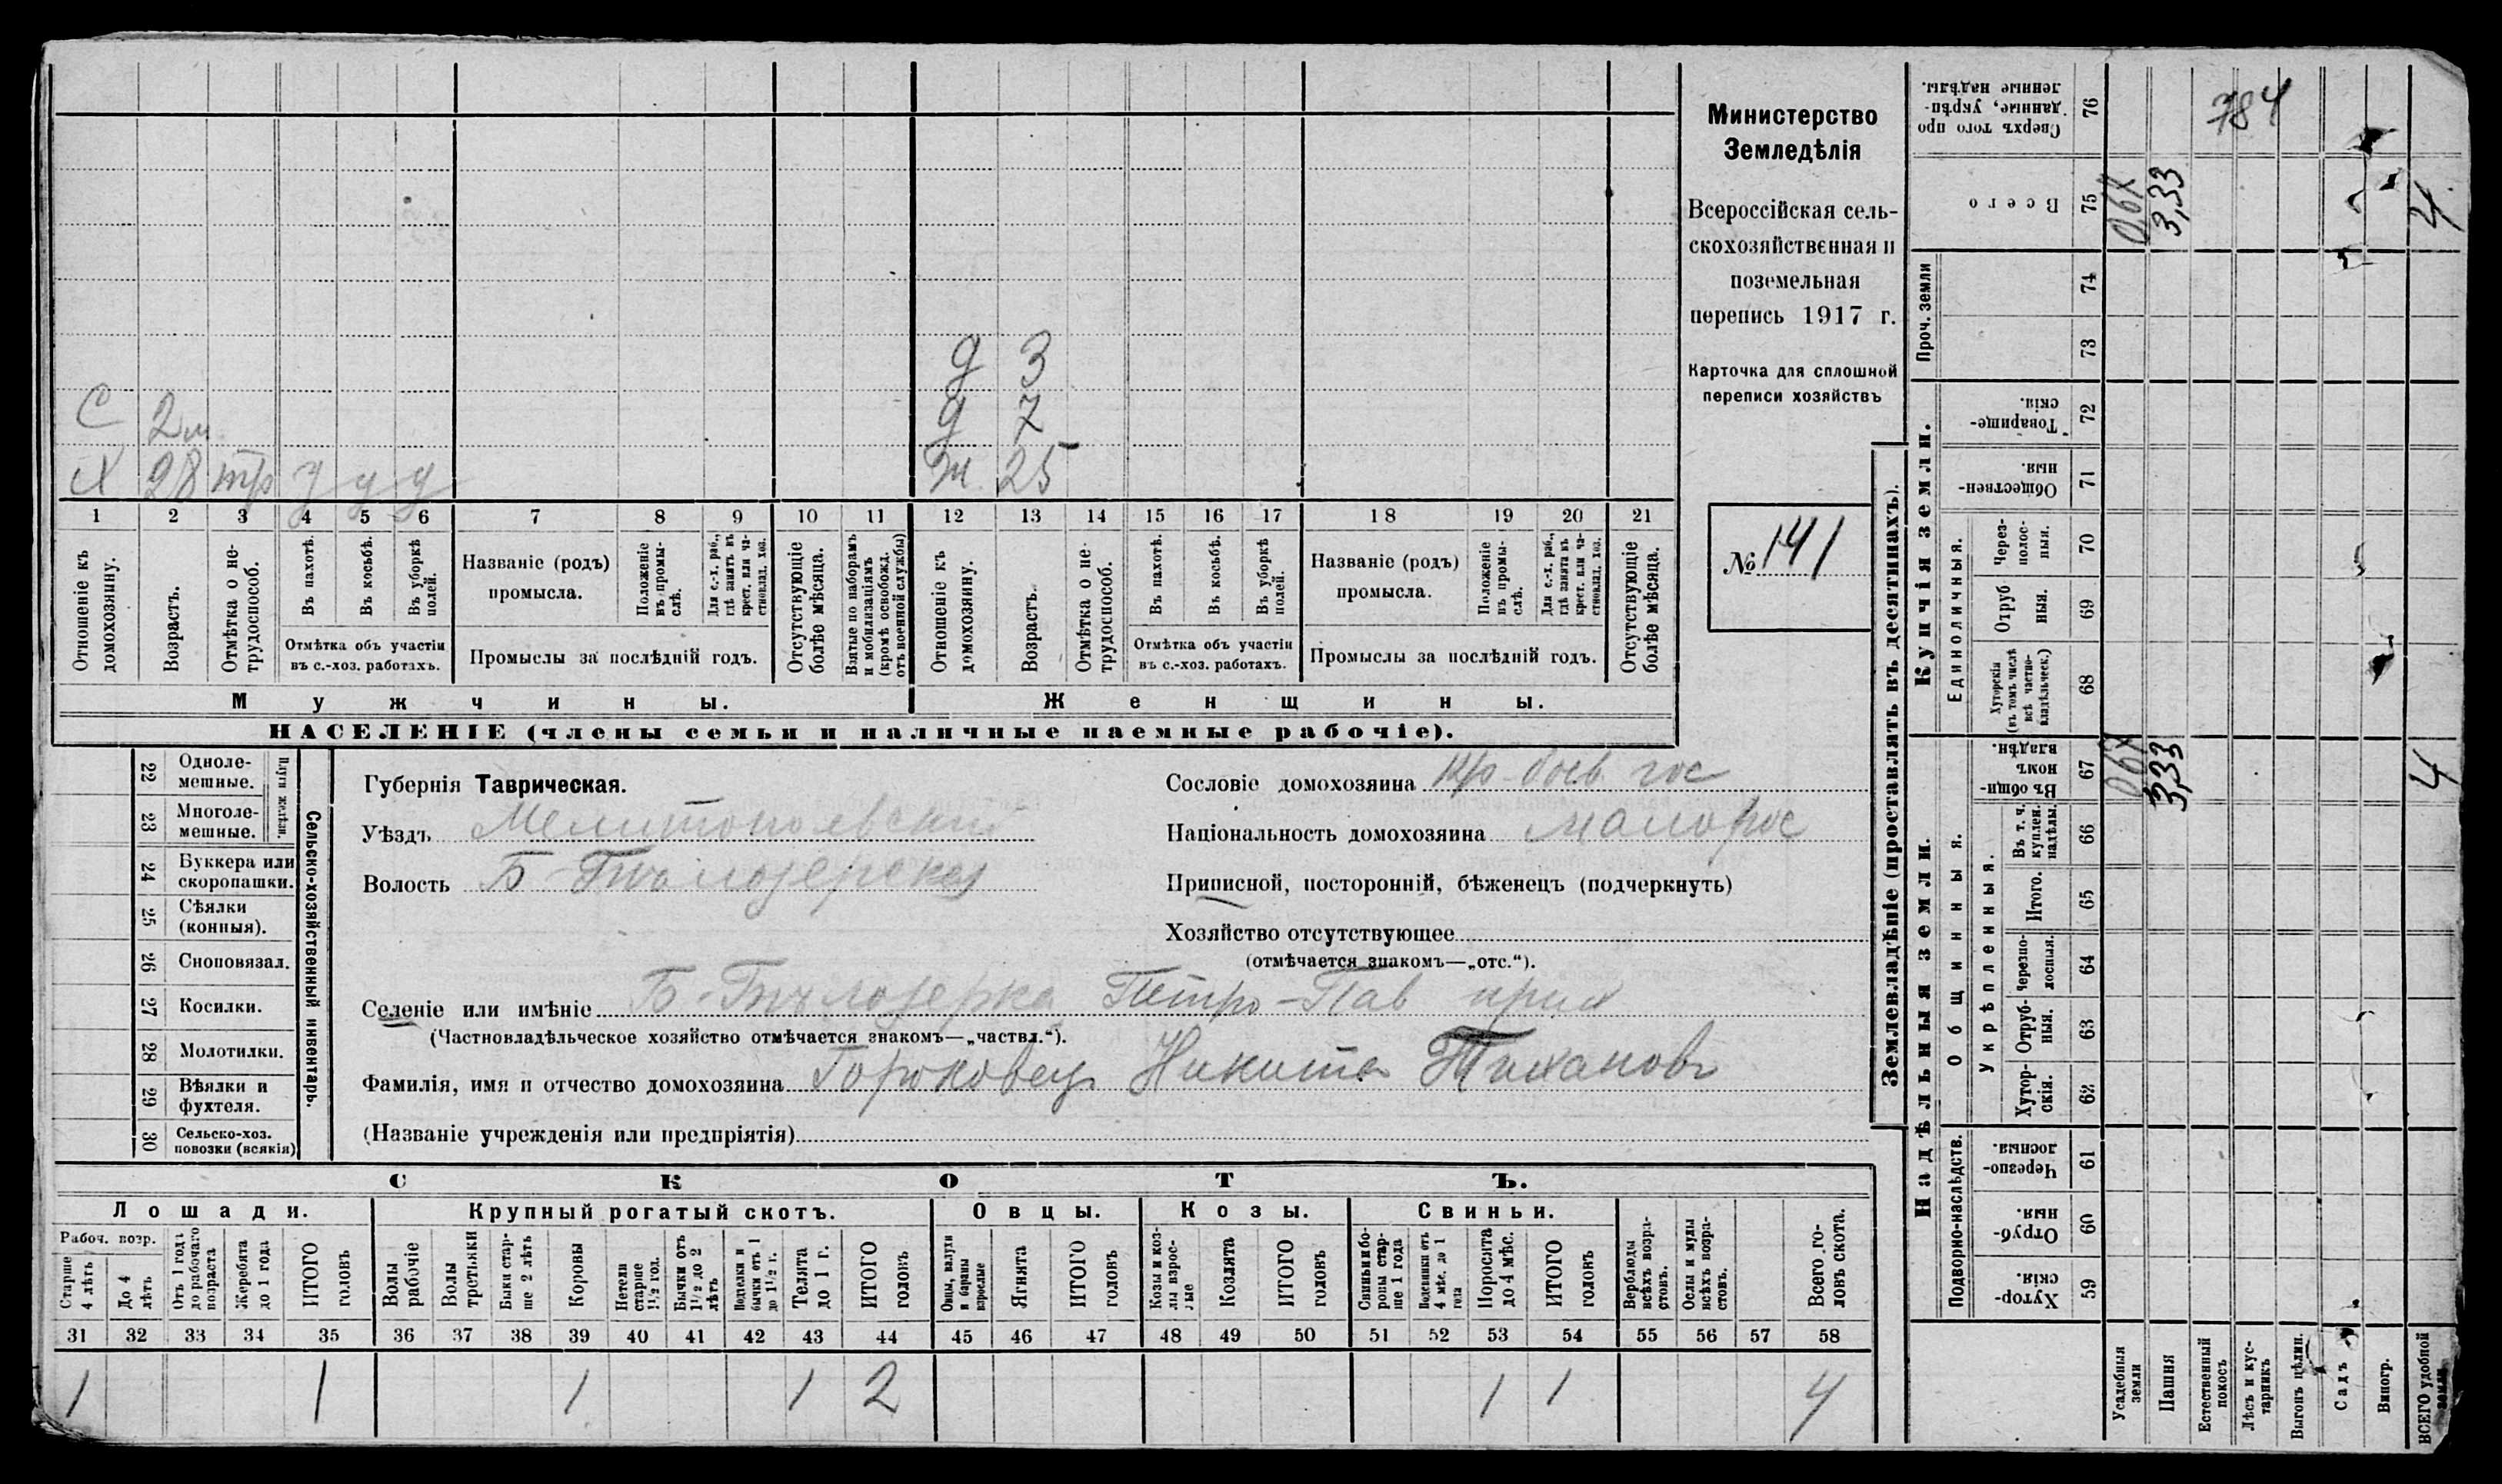 Министерство
Земледѣлія
Всероссійская сель-
скохозяйственная и
поземельная
перепись 1917 г.
Карточка для сплошной
переписи хозяйствъ
№ 141
д 3
С 2 м д 7
Х 28 тр у у у ж 25
1 2 3 4 5 6 7 8 9 10 11 12 13 14 15 16 17 18 19 20 21
Отношеніе къ домохозяину.
Возрастъ.
Отмѣтка о не-трудоспособ.
Въ пахотѣ.
Въ косьбѣ.
Въ уборкѣ полей.
Отмѣтка объ участіи
въ с.-хоз. работахъ.
Названіе (родъ)
промысла.
Положеніе въ промы-слѣ.
Для с.-х. раб., гдѣ занятъ въ крест. или ча-стновлад. хоз.
Промыслы за послѣдній годъ.
Отсутствующіе болѣе мѣсяца.
Взятые по наборамъ и мобилизаціямъ (кромѣ освобожд. отъ военной службы)
Отношеніе къ домохозяину.
Возрастъ.
Отмѣтка о не-трудоспособ.
Въ пахотѣ.
Въ косьбѣ.
Въ уборкѣ полей.
Отмѣтка объ участіи
въ с.-хоз. работахъ.
Названіе (родъ)
промысла.
Положеніе въ промы-слѣ.
Для с.-х. раб., гдѣ занята въ крест. или ча-стновлад. хоз.
Промыслы за послѣдній годъ.
Отсутствующіе болѣе мѣсяца.
Мужчины.
Женщины.
НАСЕЛЕНІЕ (члены семьи и наличные наемные рабочіе).
22 Одноле-мешные.
23 Многоле-мешные.
Плуги желѣзн.
24 Буккера или скоропашки.
25 Сѣялки (конныя).
26 Сноповязал.
27 Косилки.
28 Молотилки.
29 Вѣялки и фухтеля.
30 Сельско-хоз. повозки (всякія)
Сельско-хозяйственный инвентарь.
Губернія Таврическая.
Уѣздъ Мелитопольскій
Волость Б-Бѣлозерская
Сословіе домохозяина кр-
Національность домохозяина малорос
Приписной, посторонній, бѣженецъ (подчеркнуть)
Хозяйство отсутствующее
(отмѣчается знакомъ—„отс.“).
Селеніе или имѣніе Б-Бѣлозерка Петро-Пав прих
(Частновладѣльческое хозяйство отмѣчается знакомъ—„частвл.“).
Фамилія, имя и отчество домохозяина Гороховец Никита Тихановъ
(Названіе учрежденія или предпріятія)
СКОТЪ.
Лошади.
Крупный рогатый скотъ.
Овцы.
Козы.
Свиньи.
Рабоч. возр.
Старше 4 лѣтъ
До 4 лѣтъ
Отъ 1 года до рабочаго возраста
Жеребята до 1 года
ИТОГО головъ
Волы рабочіе
Волы третьяки
Быки стар-ше 2 лѣтъ
Коровы
Нетели старше 1½ год.
Бычки отъ 1½ до 2 лѣтъ
Подтелки и бычки отъ 1 до 1½ г.
Телята до 1 г.
ИТОГО головъ
Овцы, валухи и бараны взрослые
Ягнята
ИТОГО головъ
Козы и коз-лы взрос-лые
Козлята
ИТОГО головъ
Свиньи и бо-ровы стар-ше 1 года
Подсвинки отъ 4 мѣс. до 1 года
Поросята до 4 мѣс.
ИТОГО головъ
Верблюды всѣхъ возра-стовъ.
Ослы и мулы всѣхъ возра-стовъ.
Всего го-ловъ скота.
31 32 33 34 35 36 37 38 39 40 41 42 43 44 45 46 47 48 49 50 51 52 53 54 55 56 57 58
1 1 1 1 2 1 1 4
Землевладѣніе (проставлять въ десятинахъ).
Надѣльныя земли.
Купчія земли.
Проч. земли
Подворно-наслѣдств.
Общинныя.
Укрѣпленныя.
Единоличныя.
Сверхъ того про данные, укрѣп-ленные надѣлы. 76
Всего 75
74
73
Товарище-скія. 72
Обществен-ныя. 71
Через-полос-ныя. 70
Отруб ныя. 69
Хуторскія (въ томъ числѣ всѣ частно-владѣльческ.) 68
Въ общи-номъ владѣн. 67
Въ т. ч. куплен. надѣлы. 66
Итого. 65
Черезпо-лосныя. 64
Отруб-ныя. 63
Хутор-скія. 62
Черезпо-лосныя. 61
Отруб-ныя. 60
Хутор-скія. 59
784
067 3,33 4
067 3,33 4
Усадебныя земли
Пашня
Естественный покосъ
Лѣсъ и кус-тарникъ
Выгонъ цѣлин.
Садъ
Виногр.
ВСЕГО удобной земли